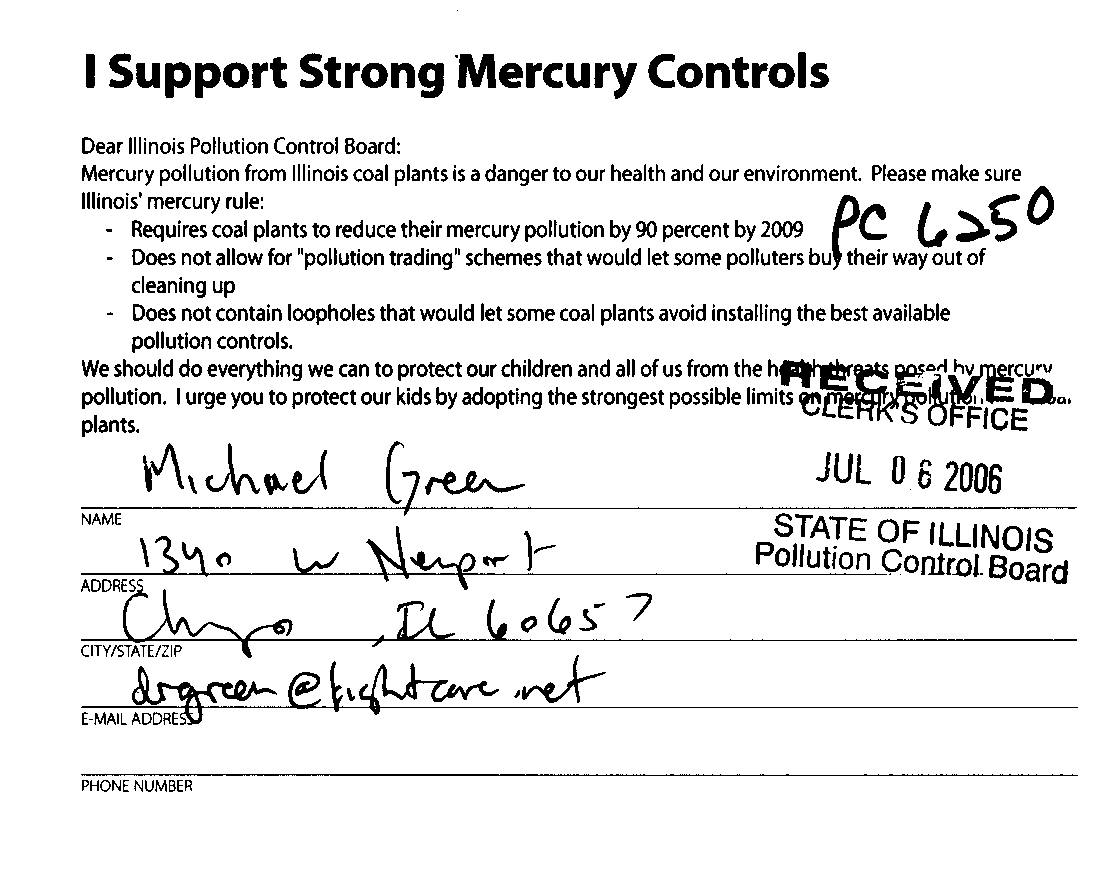 I Support Strong Mercury Controls
Dear Illinois Pollution Control Board:
Mercury pollution from Illinois coal plants is a danger to our health and our environment. Please make sure
Illinois' mercury rule:
- Requires coal plants to reduce their mercury pollution by 90 percent by 2009
PC 6250
- Does not allow for "pollution trading" schemes that would let some polluters buy their way out of
cleaning up
- Does not contain loopholes that would let some coal plants avoid installing the best available
pollution controls.
We should do everything we can to protect our children and all of us from the health threats posed by mercury
RECEIVED
pollution. I urge you to protect our kids by adopting the strongest possible limits on mercury pollution
CLERK'S OFFICE
plants.
Michael Green
JUL 06 2006
NAME
STATE OF ILLINOIS
1340 W Newport
Pollution Control Board
ADDRESS
Chgo, IL 60657
CITY/STATE/ZIP
E-MAIL ADDRESS
PHONE NUMBER